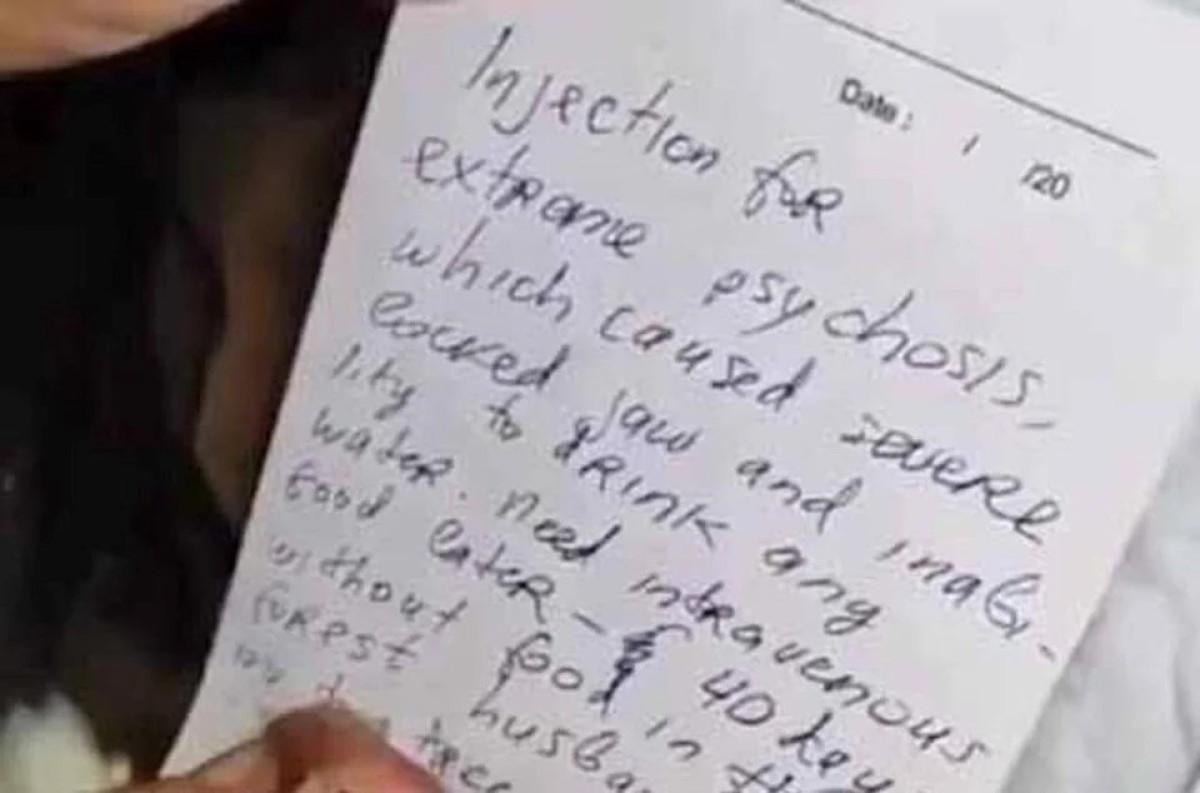 Date: / /20
Injection for
extreme psychosis,
which caused severe
locked jaw and inabi-
lity to drink any
water. need intravenous
food later - 40
without food in
forest husba